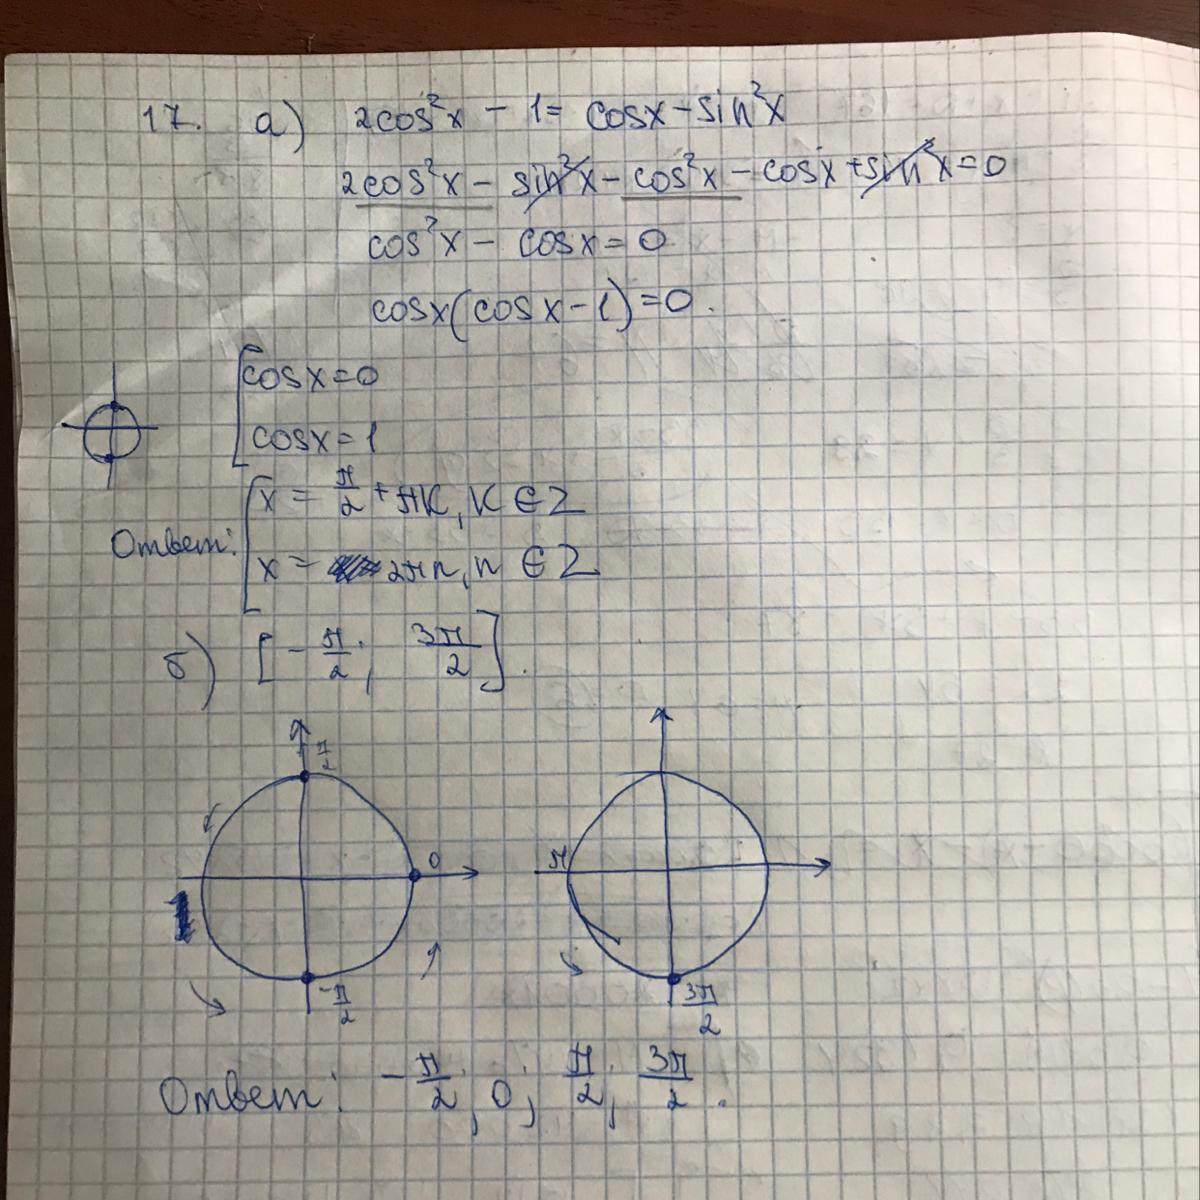 17. а) 2cos²x - 1 = cosx - sin²x
2cos²x - sin²x - cos²x - cosx + sin²x = 0
cos²x - cosx = 0
cosx(cosx - 1) = 0.
cosx = 0
cosx = 1
x = π/2 + πk, k ∈ Z
Ответ:
x = 2πn, n ∈ Z
б) [-π/2; 3π/2].
π/2
0
-π/2
π
3π/2
Ответ: -π/2; 0; π/2; 3π/2.